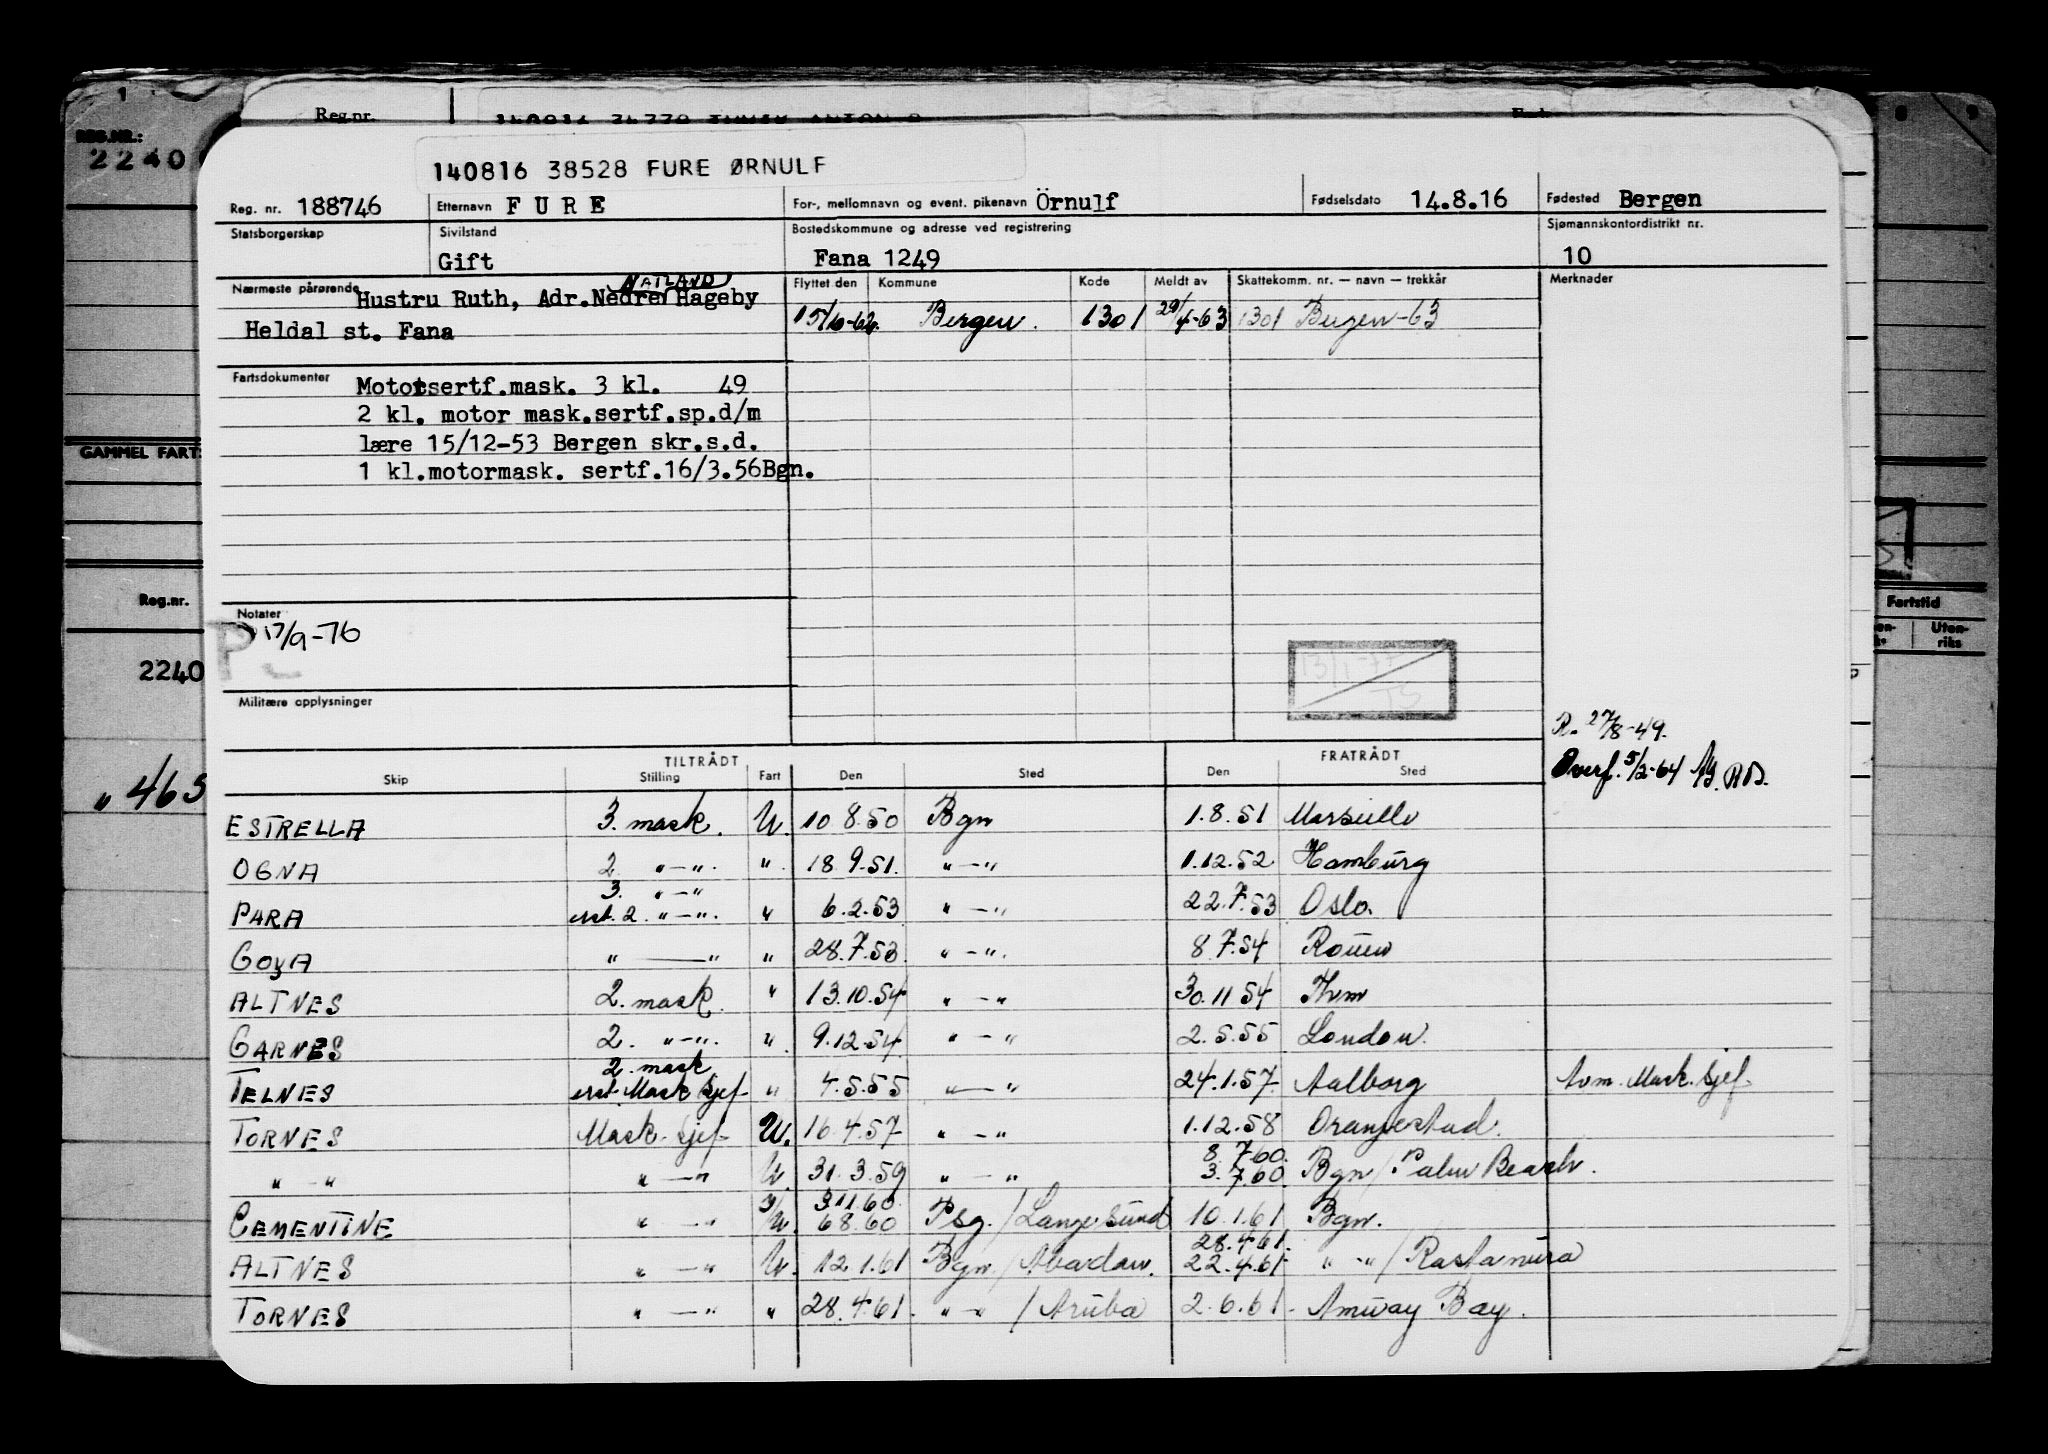 REG.NR.:
2240
GAMMEL FART
Reg.nr.
2240
" 465
Reg.nr.
Fartstid
Uten-
riks
140816 38528 FURE ØRNULF
Reg. nr. 188746 Etternavn FURE For-, mellomnavn og event. pikenavn Örnulf Fødselsdato 14.8.16 Fødested Bergen
Statsborgerskap Sivilstand Bostedskommune og adresse ved registrering Sjømannskontordistrikt nr.
Gift Fana 1249 10
Nærmeste pårørende Hustru Ruth, Adr.Nedre NATLAND Hageby Flyttet den Kommune Kode Meldt av Skattekomm. nr. — navn — trekkår Merknader
Heldal st. Fana 15/6-62. Bergen. 1301 29/4-63 1301 Bergen-63
Fartsdokumenter Motorsertf.mask. 3 kl. 49
2 kl. motor mask.sertf.sp.d/m
lære 15/12-53 Bergen skr.s.d.
1 kl.motormask. sertf.16/3.56Bgn.
Notater
P 17/9-76
13/1-77
TS
Militære opplysninger
R. 27/8-49.
Overf. 5/2-64
TILTRÅDT FRATRÅDT
Skip Stilling Fart Den Sted Den Sted
ESTRELLA 3. mask. U. 10 8.50 Bgn 1.8.51 Marseille
OGNA 2. "—". " 18.9.51. "—" 1.12.52 Hamburg
3. "—"
PARA erst. 2. "—". " 6.2.53 "—" 22.7.53 Oslo.
GOYA "——" " 28.7.53. "—". 8.7.54 Rouen
ALTNES 2. mask. " 13.10.54 "—" 30.11 54 Thm
GARNES 2. "—". " 9.12.54. "—" 2.5.55 London.
2. mask
TELNES erst. Mask sjef " 4.5.55 "—" 24.1.57. Aalborg Avm. Mask. sjef
TORNES Mask. sjef U. 16.4.57 "—" 1.12.58 Oranjestad.
8.7.60.
"—" "—" U. 31.3.59 "—" 3.7.60. Bgn / Palm Beach.
3.11.60.
CEMENTINE "—" U. 6.8.60 Psg. / Langesund 10.1.61 Bgn.
28.4.61.
ALTNES "—" U. 12.1.61 Bgn / Abadan. 22.4.61 "—" / Rastanura
TORNES "—" " 28.4.61. "—" / Aruba 2.6.61. Amuay Bay.